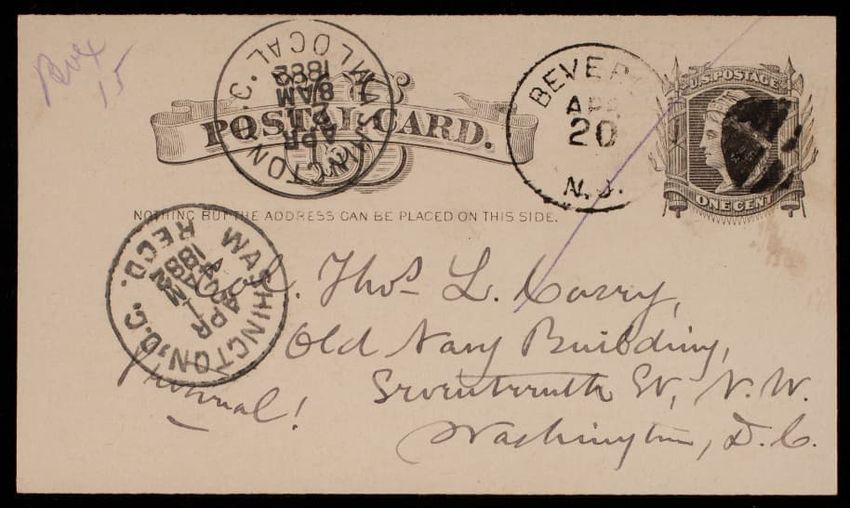 Box
15
POSTAL CARD.
WASHINGTON, D.C.
APR
8AM
1882
MAIL LOCAL
BEVERLY
APR
20
N.J.
U.S. POSTAGE
ONE CENT
NOTHING BUT THE ADDRESS CAN BE PLACED ON THIS SIDE.
WASHINGTON, D.C.
APR
AM
1882
REC'D.
Col. Thos L. Casey,
Old Navy Building,
Seventeenth St, N.W.
Personal!
Washington, D.C.